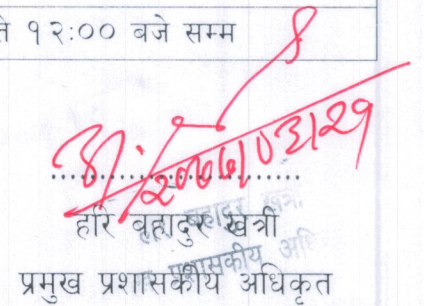 ते १२:०० बजे सम्म
.................................
हरि बहादुर खत्री
प्रमुख प्रशासकीय अधिकृत